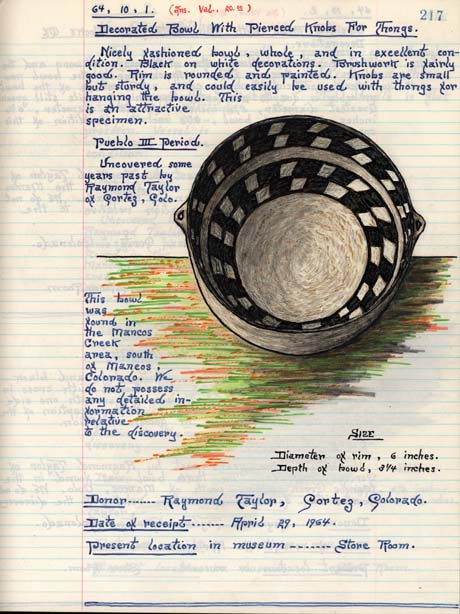 64, 10, 1. (Ins. Val., $0.00)
217
Decorated Bowl With Pierced Knobs For Thongs.
Nicely fashioned bowl, whole, and in excellent con-
dition. Black on white decorations. Brushwork is fairly
good. Rim is rounded and painted. Knobs are small
but sturdy, and could easily be used with thongs for
hanging the bowl. This
is an attractive
specimen.
Pueblo III Period.
Uncovered some
years past by
Raymond Taylor
of Cortez, Colo.
This bowl
was
found in
the Mancos
Creek
area, south
of Mancos,
Colorado. We
do not possess
any detailed in-
formation
relative
to the discovery.
SIZE
Diameter of rim, 6 inches.
Depth of bowl, 3 1/4 inches.
Donor------ Raymond Taylor, Cortez, Colorado.
Date of receipt ------ April 29, 1964.
Present location in museum ------- Store Room.